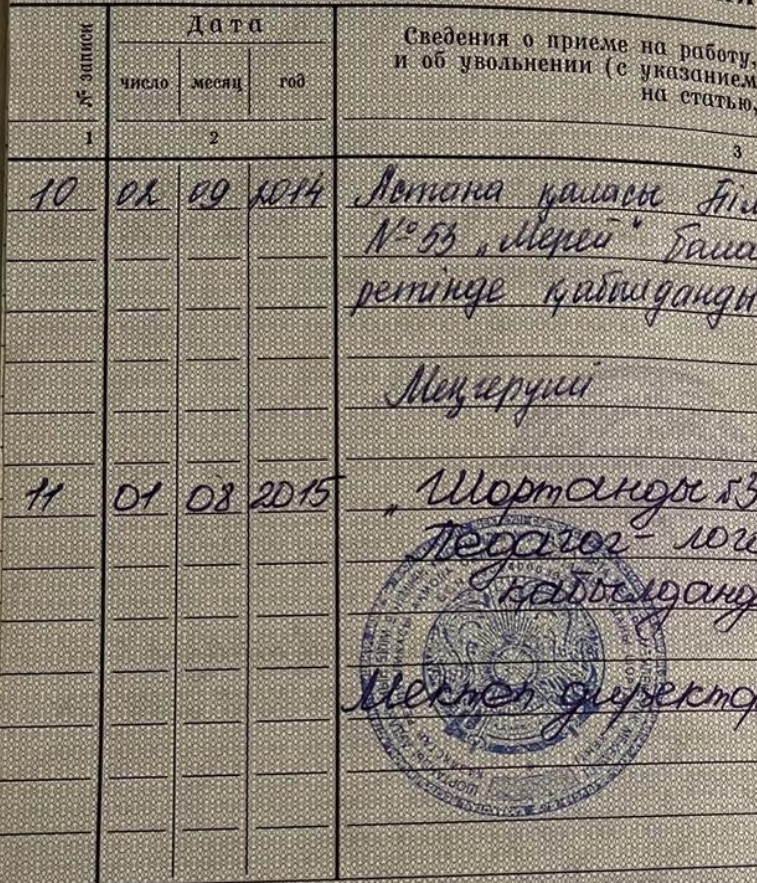 № записи
Дата
число месяц год
Сведения о приеме на работу,
и об увольнении (с указанием
на статью,
1 2 3
10 02 09 2014 Астана қаласы Біл
№53 „Мерей“ бала
ретінде қабылданды
Меңгеруші
11 01 08 2015 „Шортанды №3
Педагог-лого
қабылданд
Мектеп директор